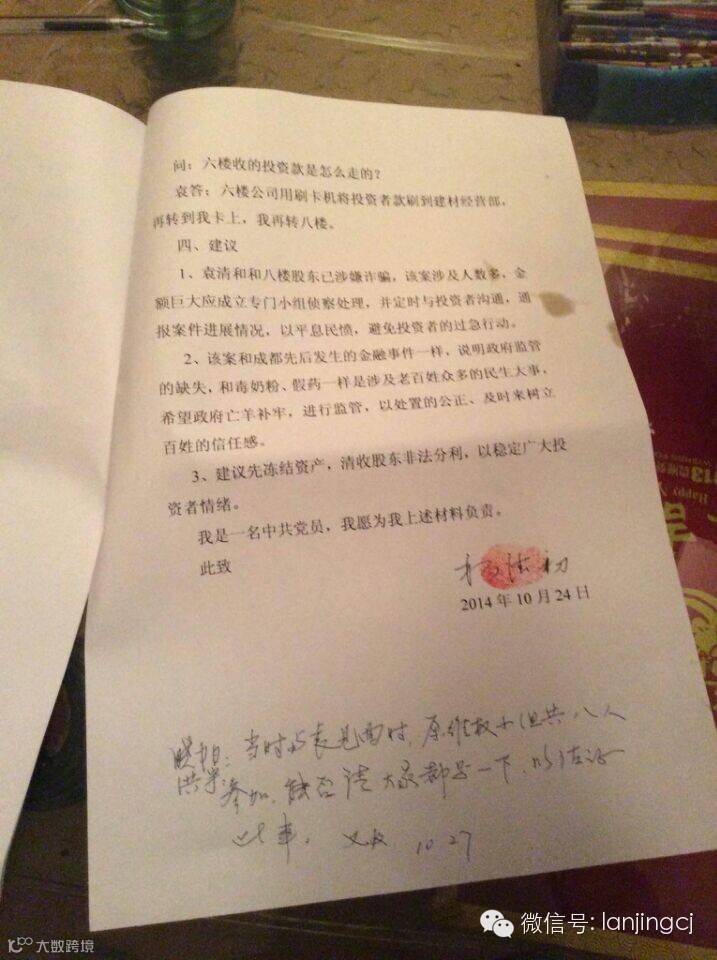 问：六楼收的投资款是怎么走的？
袁答：六楼公司用刷卡机将投资者款刷到建材经营部，
再转到我卡上，我再转八楼。
四、建议
1、袁清和和八楼股东已涉嫌诈骗，该案涉及人数多，金
额巨大应成立专门小组侦察处理，并定时与投资者沟通，通
报案件进展情况，以平息民愤，避免投资者的过急行动。
2、该案和成都先后发生的金融事件一样，说明政府监管
的缺失，和毒奶粉、假药一样是涉及老百姓众多的民生大事，
希望政府亡羊补牢，进行监管，以处置的公正、及时来树立
百姓的信任感。
3、建议先冻结资产，清收股东非法分利，以稳定广大投
资者情绪。
我是一名中共党员，我愿为我上述材料负责。
此致
2014年10月24日
当时与袁见面时，原维权小组共八人
参加，能否请大家都写一下，以佐证
此事。
10.27
113
Happy
微信号: lanjingcj
大数跨境